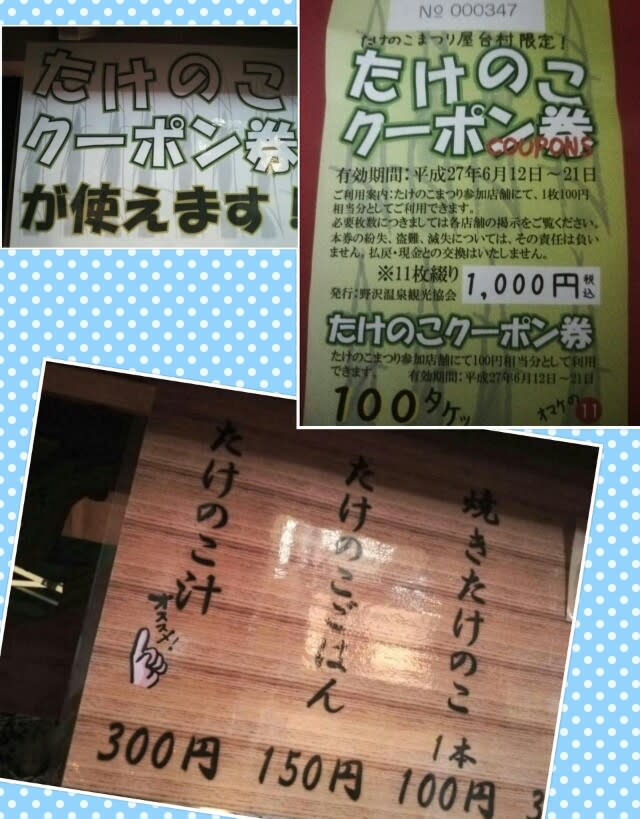 たけのこ
クーポン券
が使えます！
№ 000347
たけのこまつり屋台村限定！
たけのこ
クーポン券
COUPONS
有効期間：平成27年6月12日～21日
ご利用案内：たけのこまつり参加店舗にて、1枚100円
相当分としてご利用できます。
必要枚数につきましては各店舗の掲示をご覧ください。
本券の紛失、盗難、滅失については、その責任は負い
ません。払戻・現金との交換はいたしません。
※11枚綴り 1,000円 税込
発行：野沢温泉観光協会
たけのこクーポン券
たけのこまつり参加店舗にて100円相当分として利用
できます。 有効期間：平成27年6月12日～21日
100タケッ
オマケの 11
焼きたけのこ
1本
100円
たけのこごはん
150円
たけのこ汁
オススメ！
300円